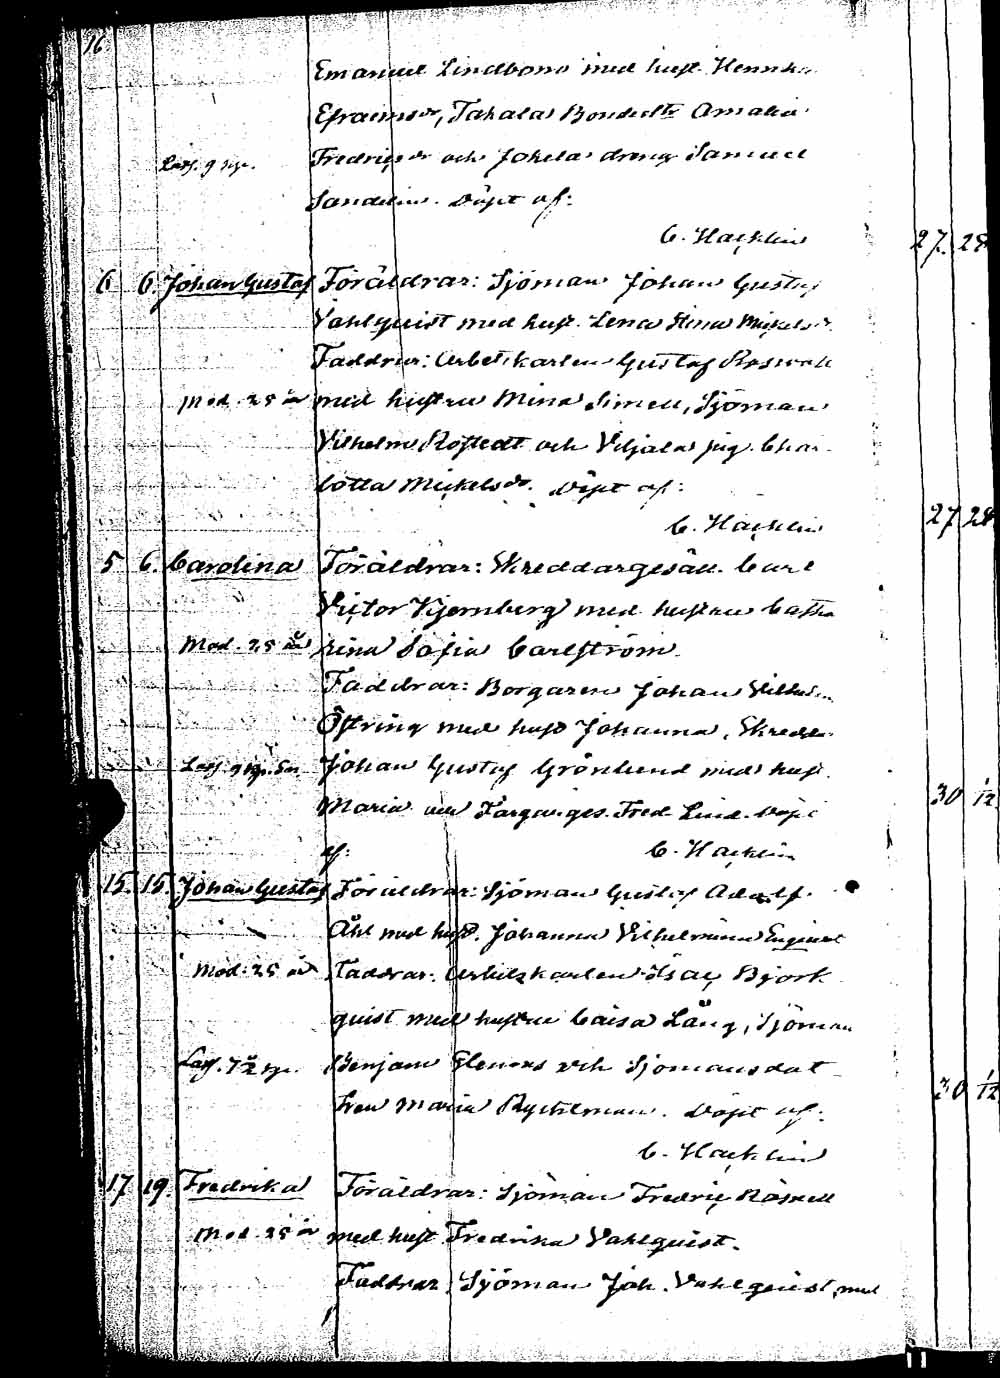 16.
Emanuel Lindbom med hust. Henrika
Efraimsdr, Tahala Bondedtr Amalia
Fredriçdr och Jokela dreng Samuel
Sandelin. Döpt af:
C. Haçklin 27. 28
6 6. Johan Gustaf Föräldrar: Sjöman Johan Gustaf
Vahlquist med hust. Lena Stina Mickelsdr
Faddrar: Arbetskarlen Gustaf Roswall
Mod. 28 år med hustru Mina Simell, Sjöman
Vilhelm Röstedt och Viljala pig. Char
lotta Mickelsdr. Döpt af:
C. Haçklin 27 28
5 6. Carolina Föräldrar: Skreddargesäll. Carl
Viçtor Kjernberg med hustru Catha
Mod. 25 år rina Sofia Carlström.
Faddrar: Borgaren Johan Vilhelm
Öfring med hust Johanna, Skredd.
Johan Gustaf Grönlund med hust.
Maria och Färgariges. Fred. Lind. Döpt
af: C. Haçklin 30 1/12
15. 15. Johan Gustaf Föräldrar: Sjöman Gustaf Adolf
Åhl med hust. Johanna Vilhelmina
Mod. 25 år Faddrar: Arbetskarlen Isaç Björk
quist med hustru Caisa Lång, Sjöman
Benjam och Sjömansdot
tren Maria Ryckman. Döpt af: 30 1/12
C. Haçklin
17 19. Fredrika Föräldrar: Sjöman Fredriç
Mod. 25 år med hust Fredrika Vahlquist.
Faddrar Sjöman Joh. Vahlquist med